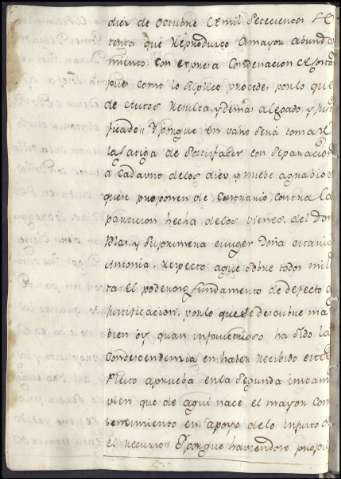 diez de Octubre de mil Setecientos Se
tenta que Reproduzco a mayor abunda
miento. Con expresa Condenacion de Costas
pues como lo suplico procede, por lo que
de Autos Resulta, y demas alegado, y Jus
tificado: Y porque en vano sera tomar
la fatiga de Satisfacer con Separacion
a Cada uno de los diez, y nueve agravios
que se proponen de Contrario, contra la
particion hecha de los vienes del Don
Blas, y su primera muger Doña
Antonia, Respecto a que sobre todos mili
ta el poderoso fundamento de defecto de
Justificacion, por lo que se descubre mas
bien oy quan infructuoso ha sido la
Condescendencia en haver Recibido este
Pleito a prueba en la Segunda instan
cia que de aqui nace el mayor con
vencimiento en apoyo de lo injusto de
el Recurso: Porque haviendose propu